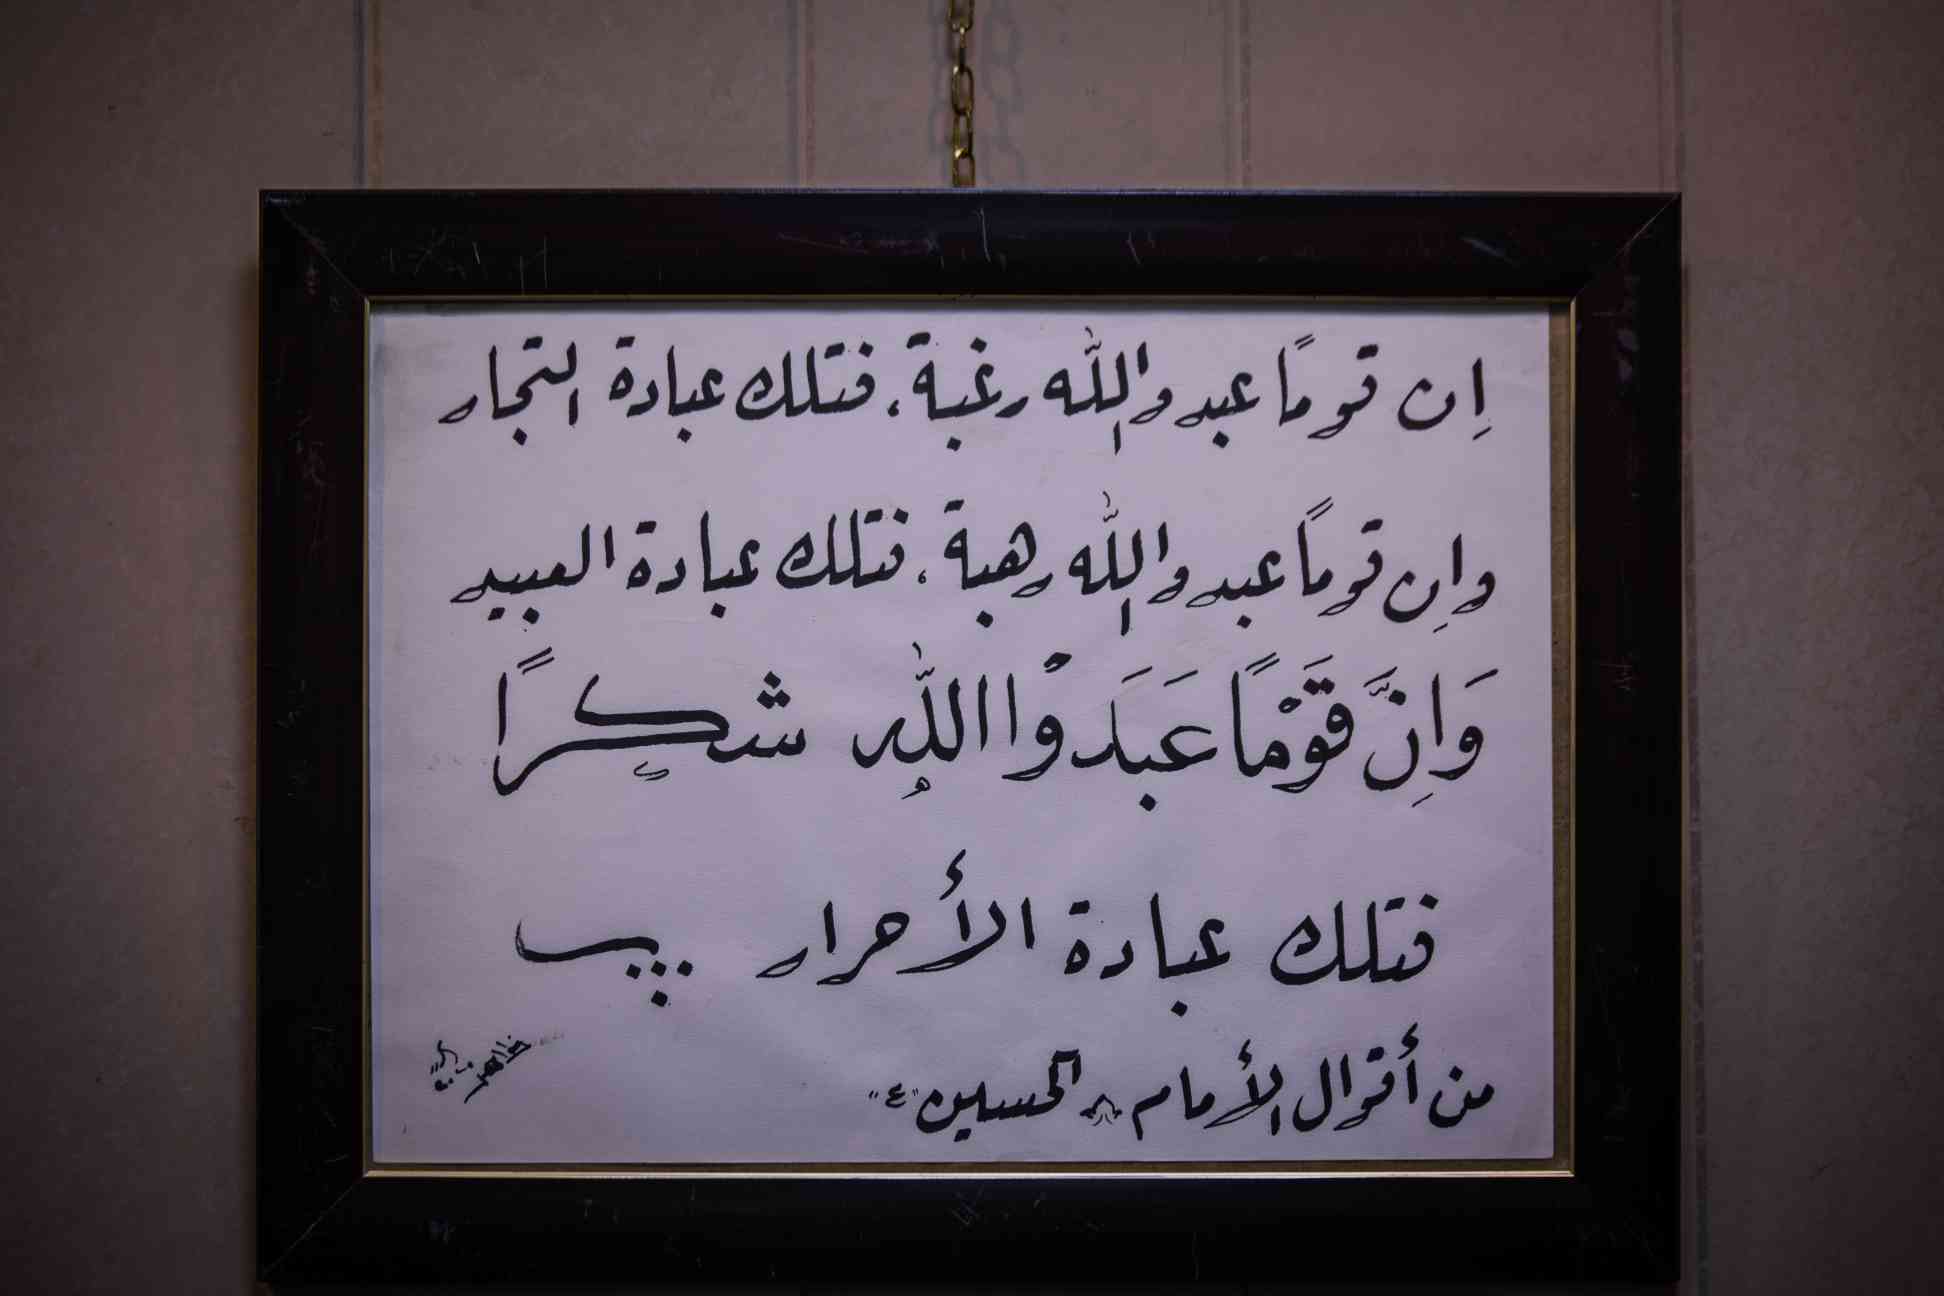 إن قومًا عبدوا الله رغبة، فتلك عبادة التجار
وإن قومًا عبدوا الله رهبة، فتلك عبادة العبيد
وَإِنَّ قَوْمًا عَبَدَوْا اللّٰهِ شكرًا
فتلك عبادة الأحرار
من أقوال الأمام الحسين "ع"